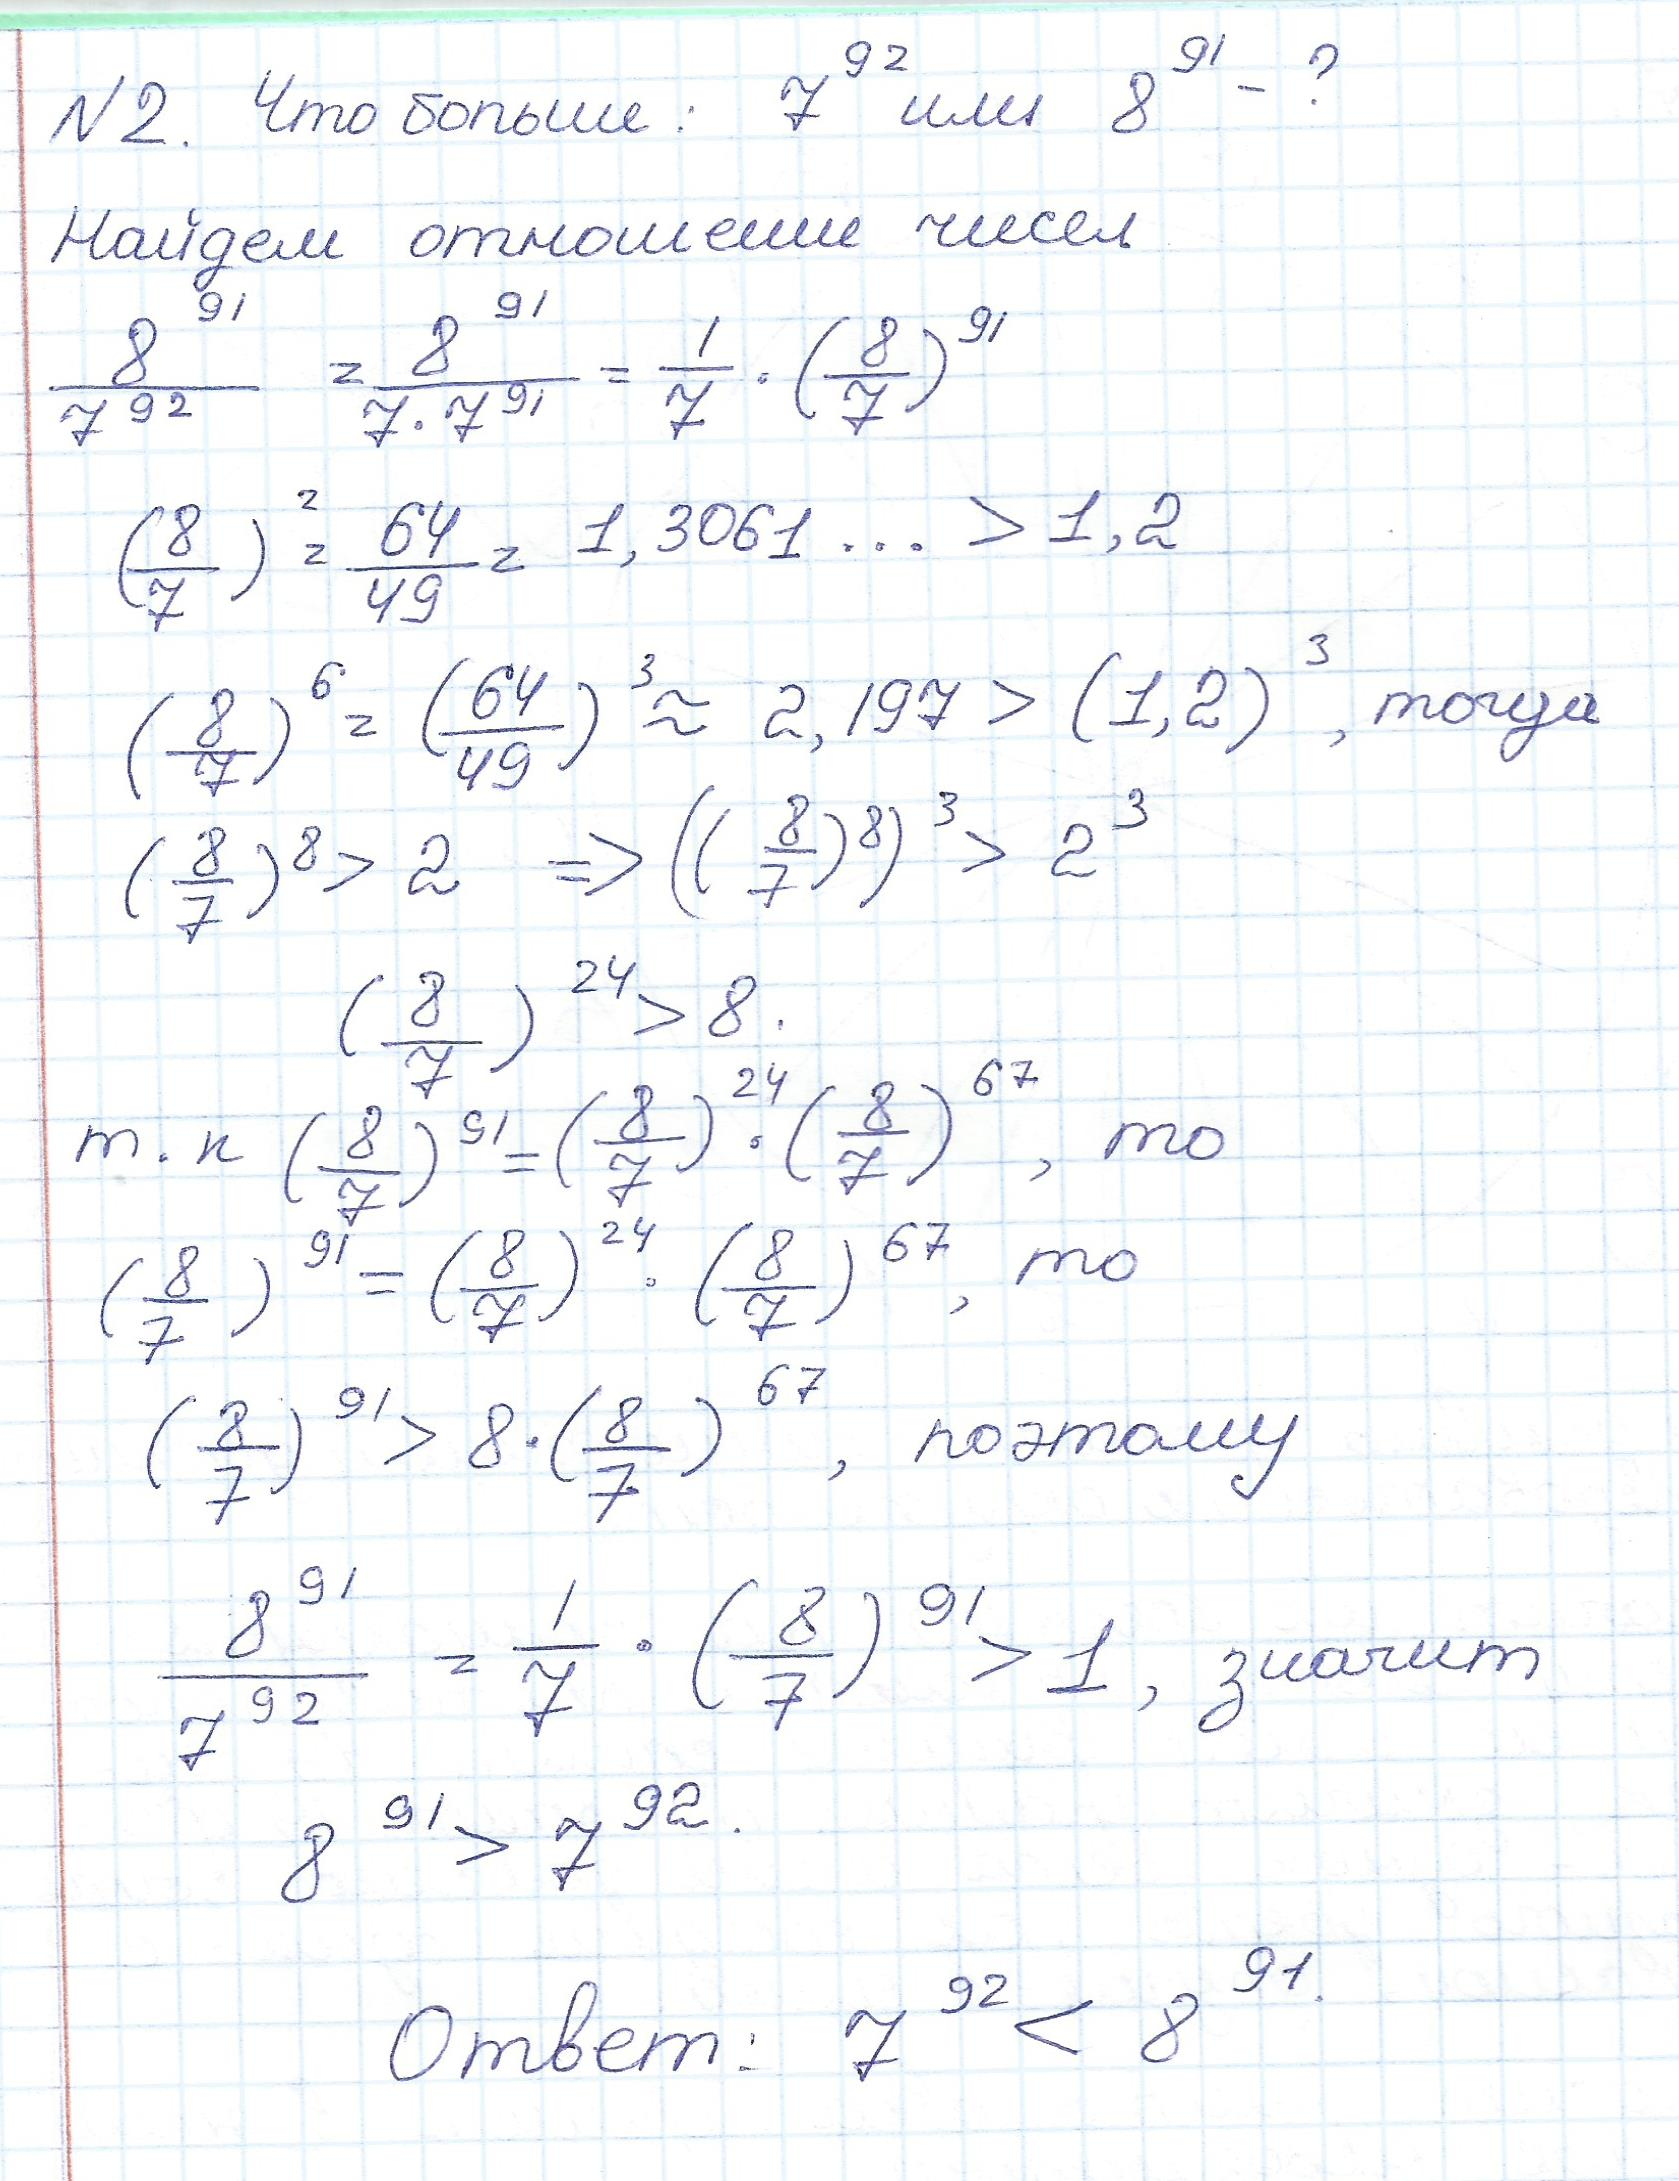 N2. Что больше: 7^92 или 8^91 - ?
Найдем отношение чисел
8^91/7^92 = 8^91/(7·7^91) = 1/7 · (8/7)^91
(8/7)^2 = 64/49 = 1,3061... > 1,2
(8/7)^6 = (64/49)^3 ≈ 2,197 > (1,2)^3, тогда
(8/7)^8 > 2 => ((8/7)^8)^3 > 2^3
(8/7)^24 > 8.
т.к (8/7)^91 = (8/7)^24 · (8/7)^67, то
(8/7)^91 = (8/7)^24 · (8/7)^67, то
(8/7)^91 > 8·(8/7)^67, поэтому
8^91/7^92 = 1/7 · (8/7)^91 > 1, значит
8^91 > 7^92.
Ответ: 7^92 < 8^91.